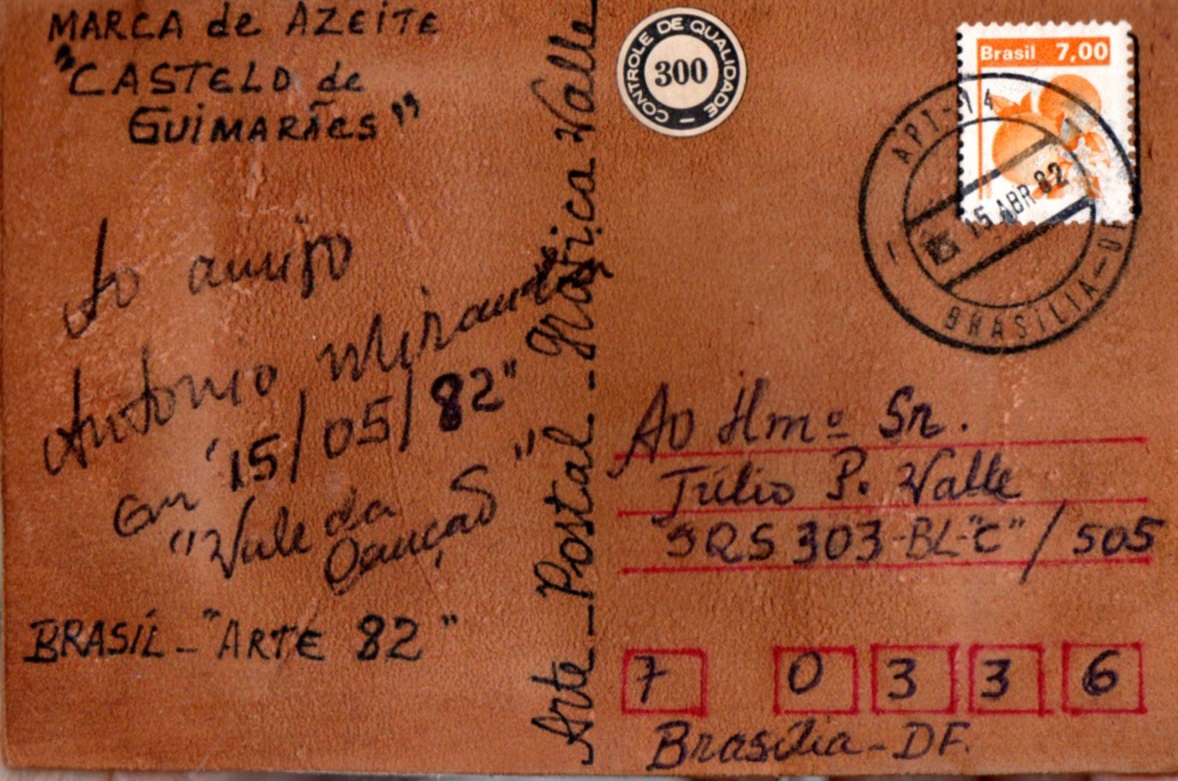 MARCA de AZEITE
"CASTELO de
GUIMARÃES"
Ao amigo
Antonio Miranda
"15/05/82"
em
"Vale da
Canção"
BRASIL - "ARTE 82"
Arte - Postal - gráfica Valle
CONTROLE DE QUALIDADE
300
Brasil 7,00
APT-14
15 ABR 82
BRASILIA-DF
Ao Ilmº Sr.
Túlio P. Valle
SQS 303-BL-"C" / 505
7 0 3 3 6
Brasília - DF.